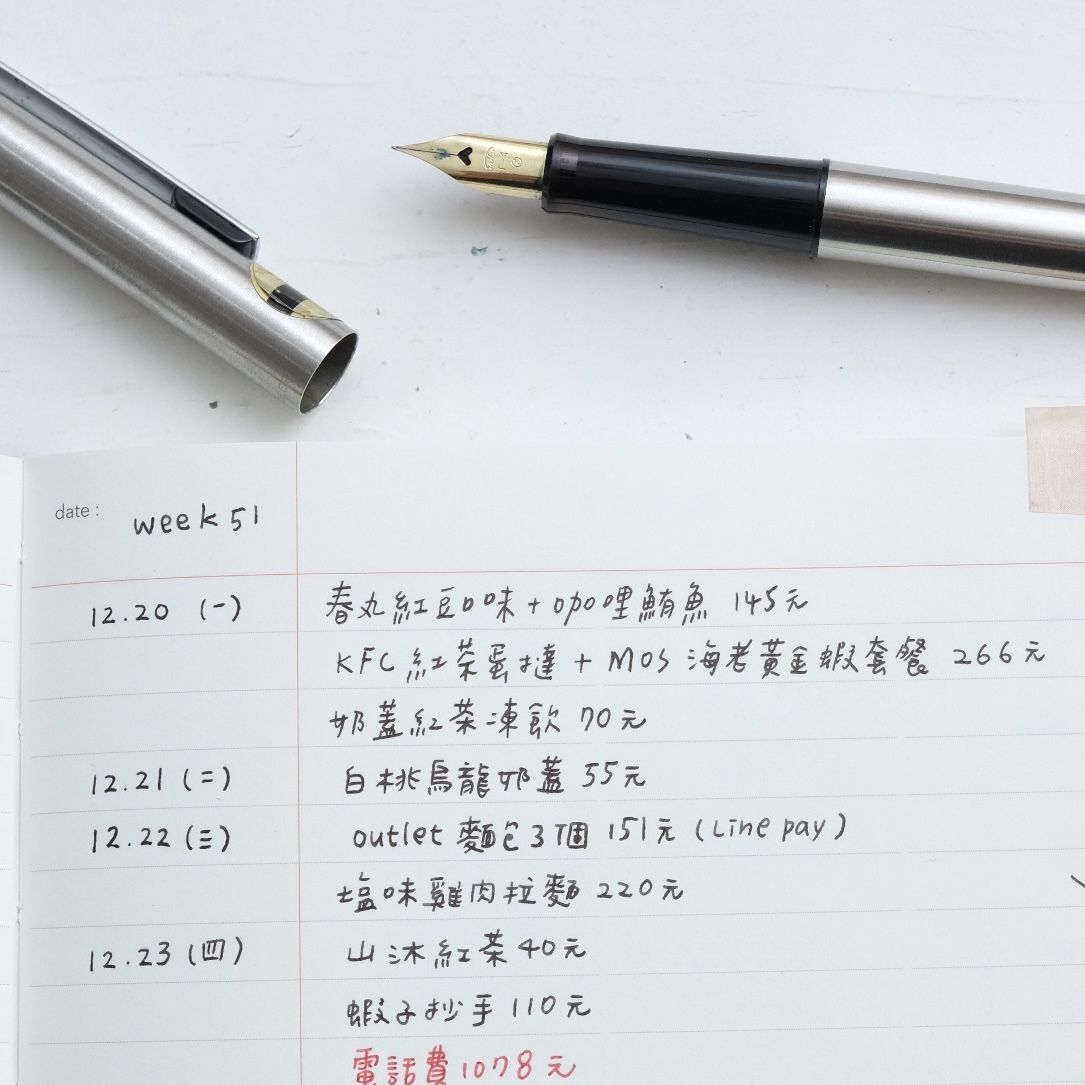 date : week 51
12.20 (一) 春丸紅豆口味 + 咖哩鮪魚 145元
KFC 紅茶蛋撻 + MOS 海老黃金蝦套餐 266元
奶蓋紅茶凍飲 70元
12.21 (二) 白桃烏龍奶蓋 55元
12.22 (三) outlet 麵包3個 151元 (Line pay)
塩味雞肉拉麵 220元
12.23 (四) 山沐紅茶 40元
蝦子抄手 110元
電話費 1078元